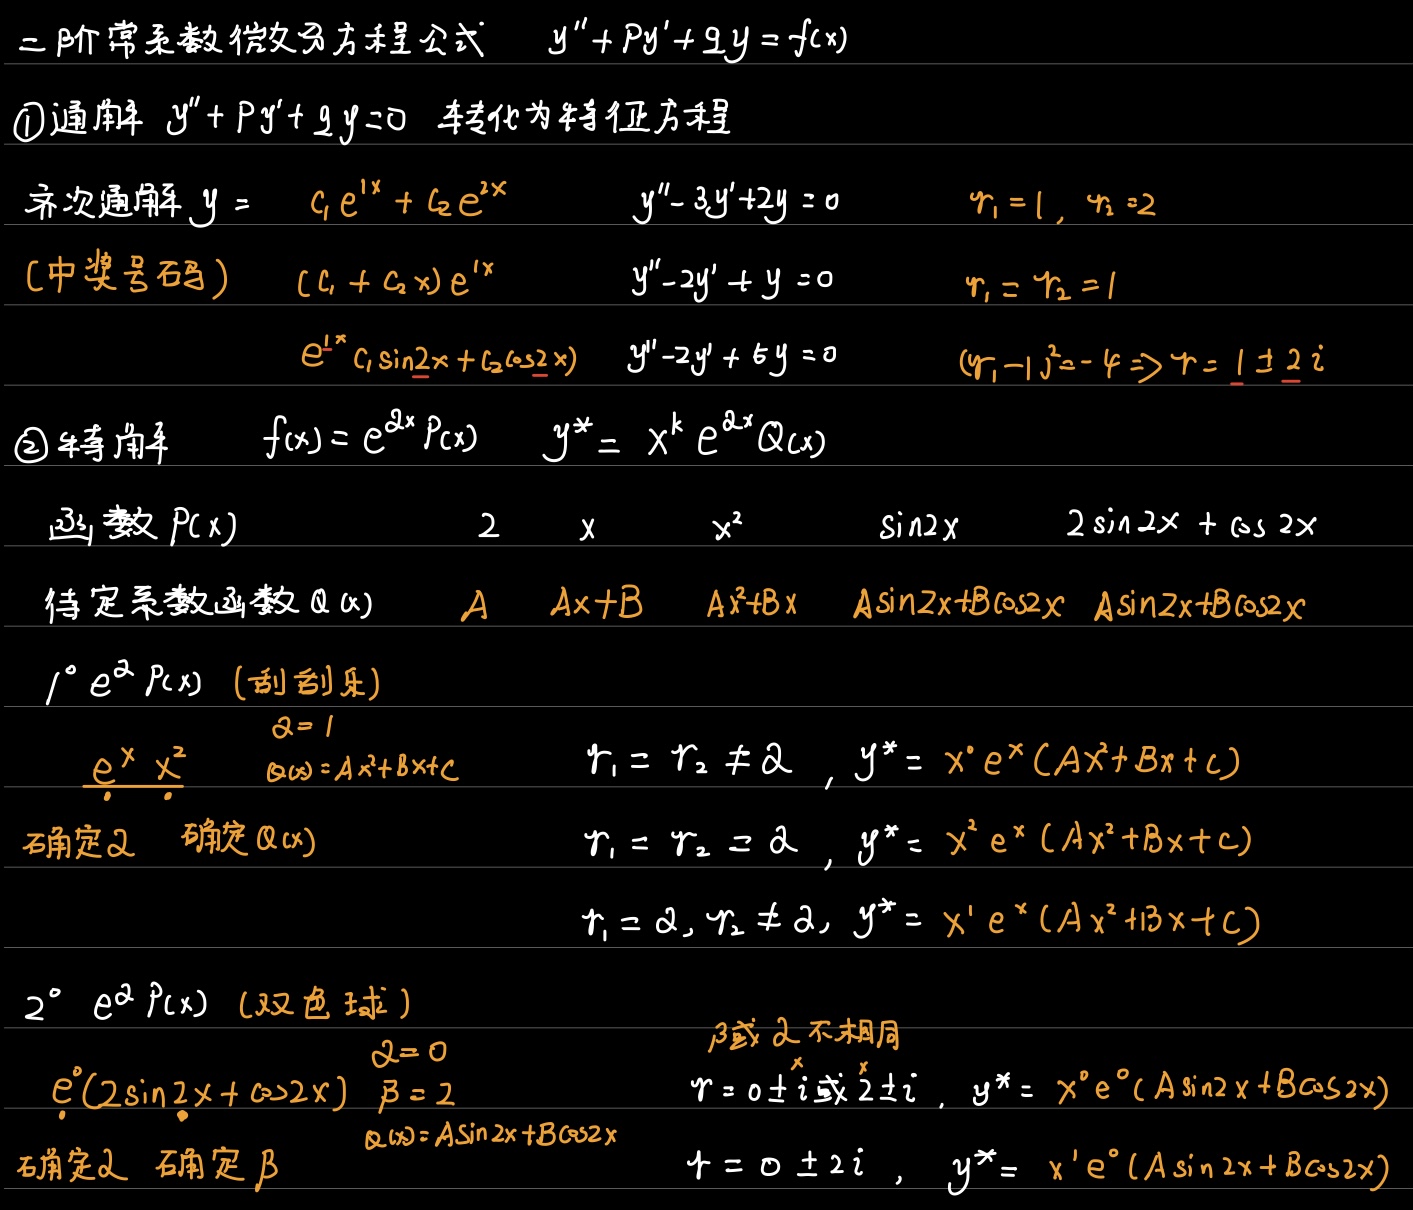 二阶常系数微分方程公式 y''+Py'+qy=f(x)
①通解 y''+Py'+qy=0 转化为特征方程
齐次通解 y = C₁e^{1x}+C₂e^{2x} y''-3y'+2y=0 r₁=1, r₂=2
(中奖号码) (C₁+C₂x)e^{1x} y''-2y'+y=0 r₁=r₂=1
e^{1x}C₁sin2x+C₂cos2x) y''-2y'+5y=0 (r₁-1)²=-4⇒r=1±2i
②特解 f(x)=e^{αx}P(x) y*=x^k e^{αx}Q(x)
函数P(x) 2 x x² sin2x 2sin2x+cos2x
待定系数函数Q(x) A Ax+B Ax²+Bx Asin2x+Bcos2x Asin2x+Bcos2x
1° e^α P(x) (刮刮乐)
α=1
e^x x² Q(x)=Ax²+Bx+C r₁=r₂≠α, y*=x⁰e^x(Ax²+Bx+C)
确定α 确定Q(x) r₁=r₂=α, y*=x²e^x(Ax²+Bx+C)
r₁=α, r₂≠α, y*=x¹e^x(Ax²+Bx+C)
2° e^α P(x) (双色球)
β或α不相同
α=0
e⁰(2sin2x+cos2x) β=2 r=0±i或2±i, y*=x⁰e⁰(Asin2x+Bcos2x)
Q(x)=Asin2x+Bcos2x
确定α 确定β r=0±2i, y*=x¹e⁰(Asin2x+Bcos2x)